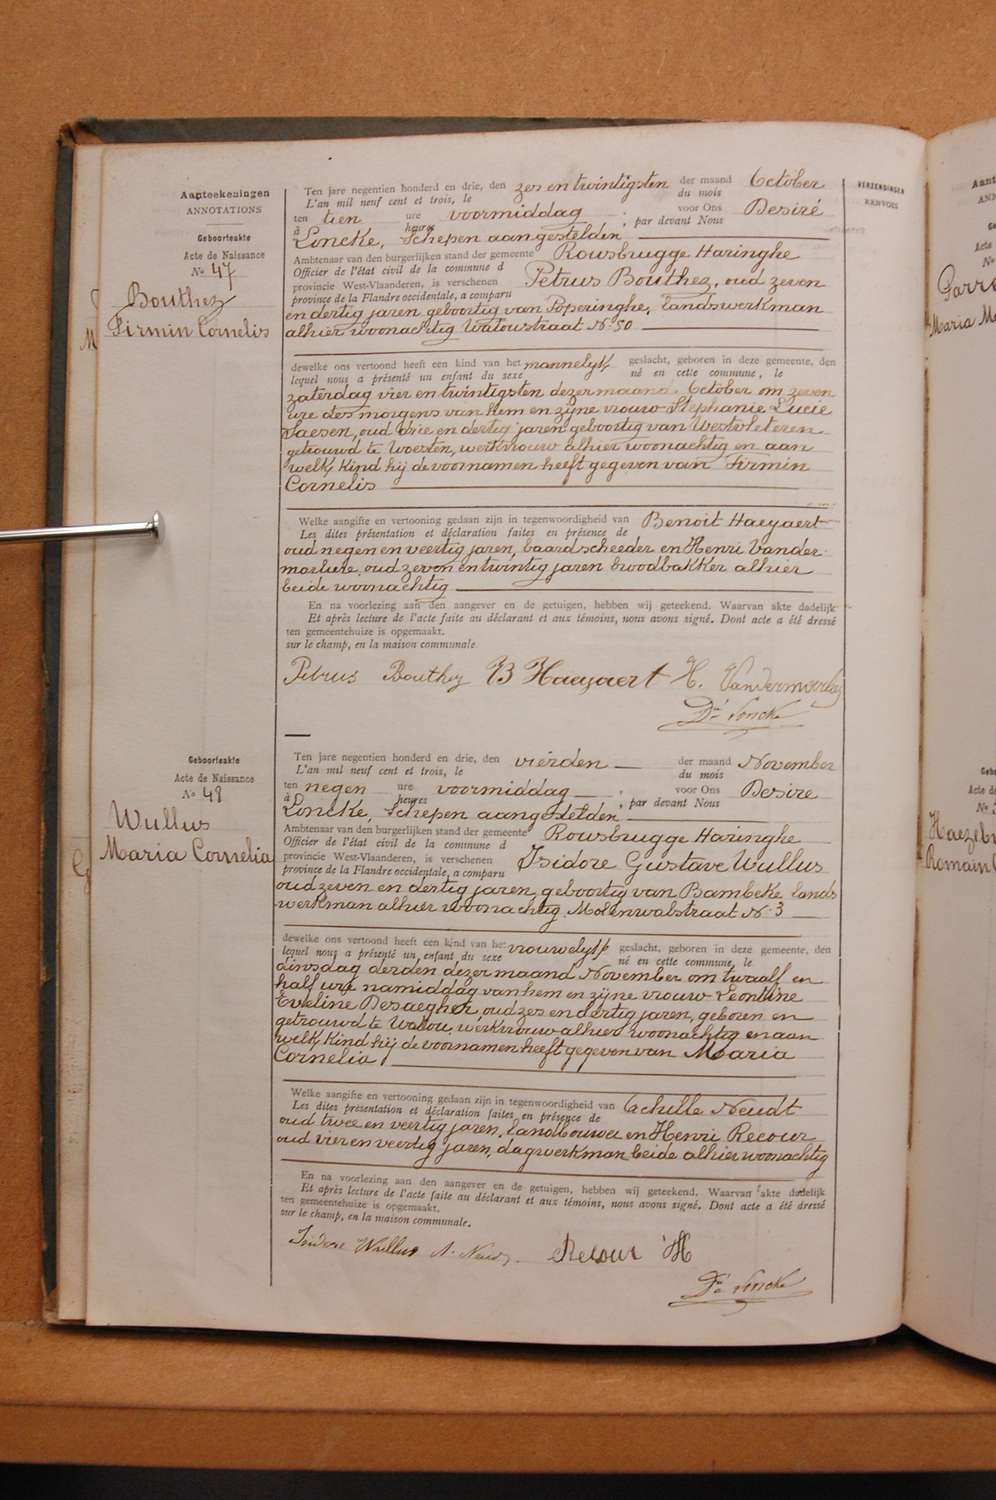 Aanteekeningen
ANNOTATIONS
Geboorteakte
Acte de Naissance
No 47
Bouthez
Firmin Cornelis
Ten jare negentien honderd en drie, den zes en twintigsten der maand October
L'an mil neuf cent et trois, le du mois
ten tien ure voormiddag ; voor Ons Desiré
à heures , par devant Nous
Loncke, Schepen aangestelden
Ambtenaar van den burgerlijken stand der gemeente Rousbrugge Haringhe
Officier de l'état civil de la commune d
provincie West-Vlaanderen, is verschenen Petrus Bouthez, oud zeven
province de la Flandre occidentale, a comparu
en dertig jaren geboortig van Poperinghe, landswerkman
alhier woonachtig Watoustraat No 50
dewelke ons vertoond heeft een kind van het mannelyk geslacht, geboren in deze gemeente, den
lequel nous a présenté un enfant du sexe né en cette commune, le
zaterdag vier en twintigsten dezer maand October om zeven
ure des morgens van hem en zijne vrouw Stephanie Lucie
Saesen, oud drie en dertig jaren geboortig van Westvleteren
getrouwd te Woesten, werkvrouw alhier woonachtig en aan
welk kind hij de voornamen heeft gegeven van Firmin
Cornelis
Welke aangifte en vertooning gedaan zijn in tegenwoordigheid van Benoit Haeyaert
Les dites présentation et déclaration faites en présence de
oud negen en veertig jaren, baardscheeder en Henri Vander-
marliere, oud zeven en twintig jaren broodbakker alhier
beide woonachtig
En na voorlezing aan den aangever en de getuigen, hebben wij geteekend. Waarvan akte dadelijk
Et après lecture de l'acte faite au déclarant et aux témoins, nous avons signé. Dont acte a été dressé
ten gemeentehuize is opgemaakt.
sur le champ, en la maison communale.
Petrus Bouthez B Haeyaert H.
Dre Loncke
Geboorteakte
Acte de Naissance
No 48
Wullus
Maria Cornelia
Ten jare negentien honderd en drie, den vierden der maand November
L'an mil neuf cent et trois, le du mois
ten negen ure voormiddag ; voor Ons Desiré
à heures , par devant Nous
Loncke, Schepen aangestelden
Ambtenaar van den burgerlijken stand der gemeente Rousbrugge Haringhe
Officier de l'état civil de la commune d
provincie West-Vlaanderen, is verschenen Isidore Gustave Wullus
province de la Flandre occidentale, a comparu
oud zeven en dertig jaren, geboortig van Bambeke lands
werkman alhier woonachtig Molenwalstraat No 3
dewelke ons vertoond heeft een kind van het vrouwelyk geslacht, geboren in deze gemeente, den
lequel nous a présenté un enfant du sexe né en cette commune, le
dinsdag derden dezer maand November om twaalf en
half ure namiddag van hem en zijne vrouw Leontine
Eveline Desaegher, oud zes en dertig jaren, geboren en
getrouwd te Watou, werkvrouw alhier woonachtig en aan
welk kind hij de voornamen heeft gegeven van Maria
Cornelia
Welke aangifte en vertooning gedaan zijn in tegenwoordigheid van Achille Neudt
Les dites présentation et déclaration faites en présence de
oud twee en veertig jaren, landbouwer en Henri Recour
oud vier en veertig jaren, dagwerkman beide alhier woonachtig
En na voorlezing aan den aangever en de getuigen, hebben wij geteekend. Waarvan akte dadelijk
Et après lecture de l'acte faite au déclarant et aux témoins, nous avons signé. Dont acte a été dressé
ten gemeentehuize is opgemaakt.
sur le champ, en la maison communale.
Isidore Wullus A. Neudt Recour H
Dre Loncke
VERZENDINGEN
RENVOIS